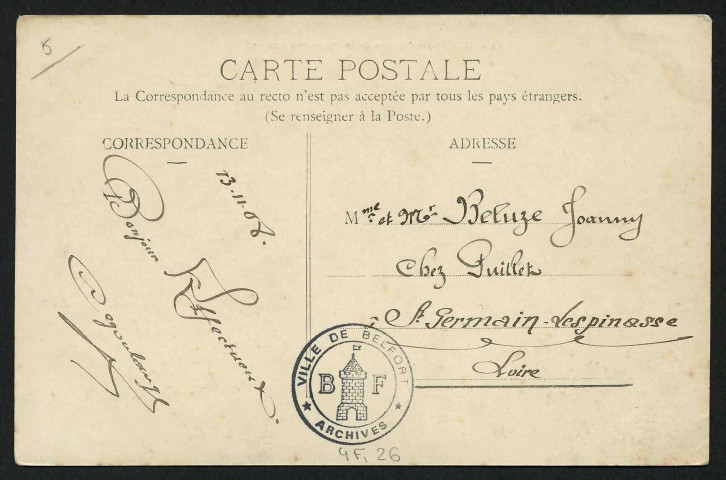 5
CARTE POSTALE
La Correspondance au recto n'est pas acceptée par tous les pays étrangers.
(Se renseigner à la Poste.)
CORRESPONDANCE
ADRESSE
13.11.08.
Bonjour
Affectueux.
Mme et Mr Beluze Joanny
Chez Puillet
à St Germain-Lespinasse
Loire
VILLE DE BELFORT
B F
ARCHIVES
4F, 26